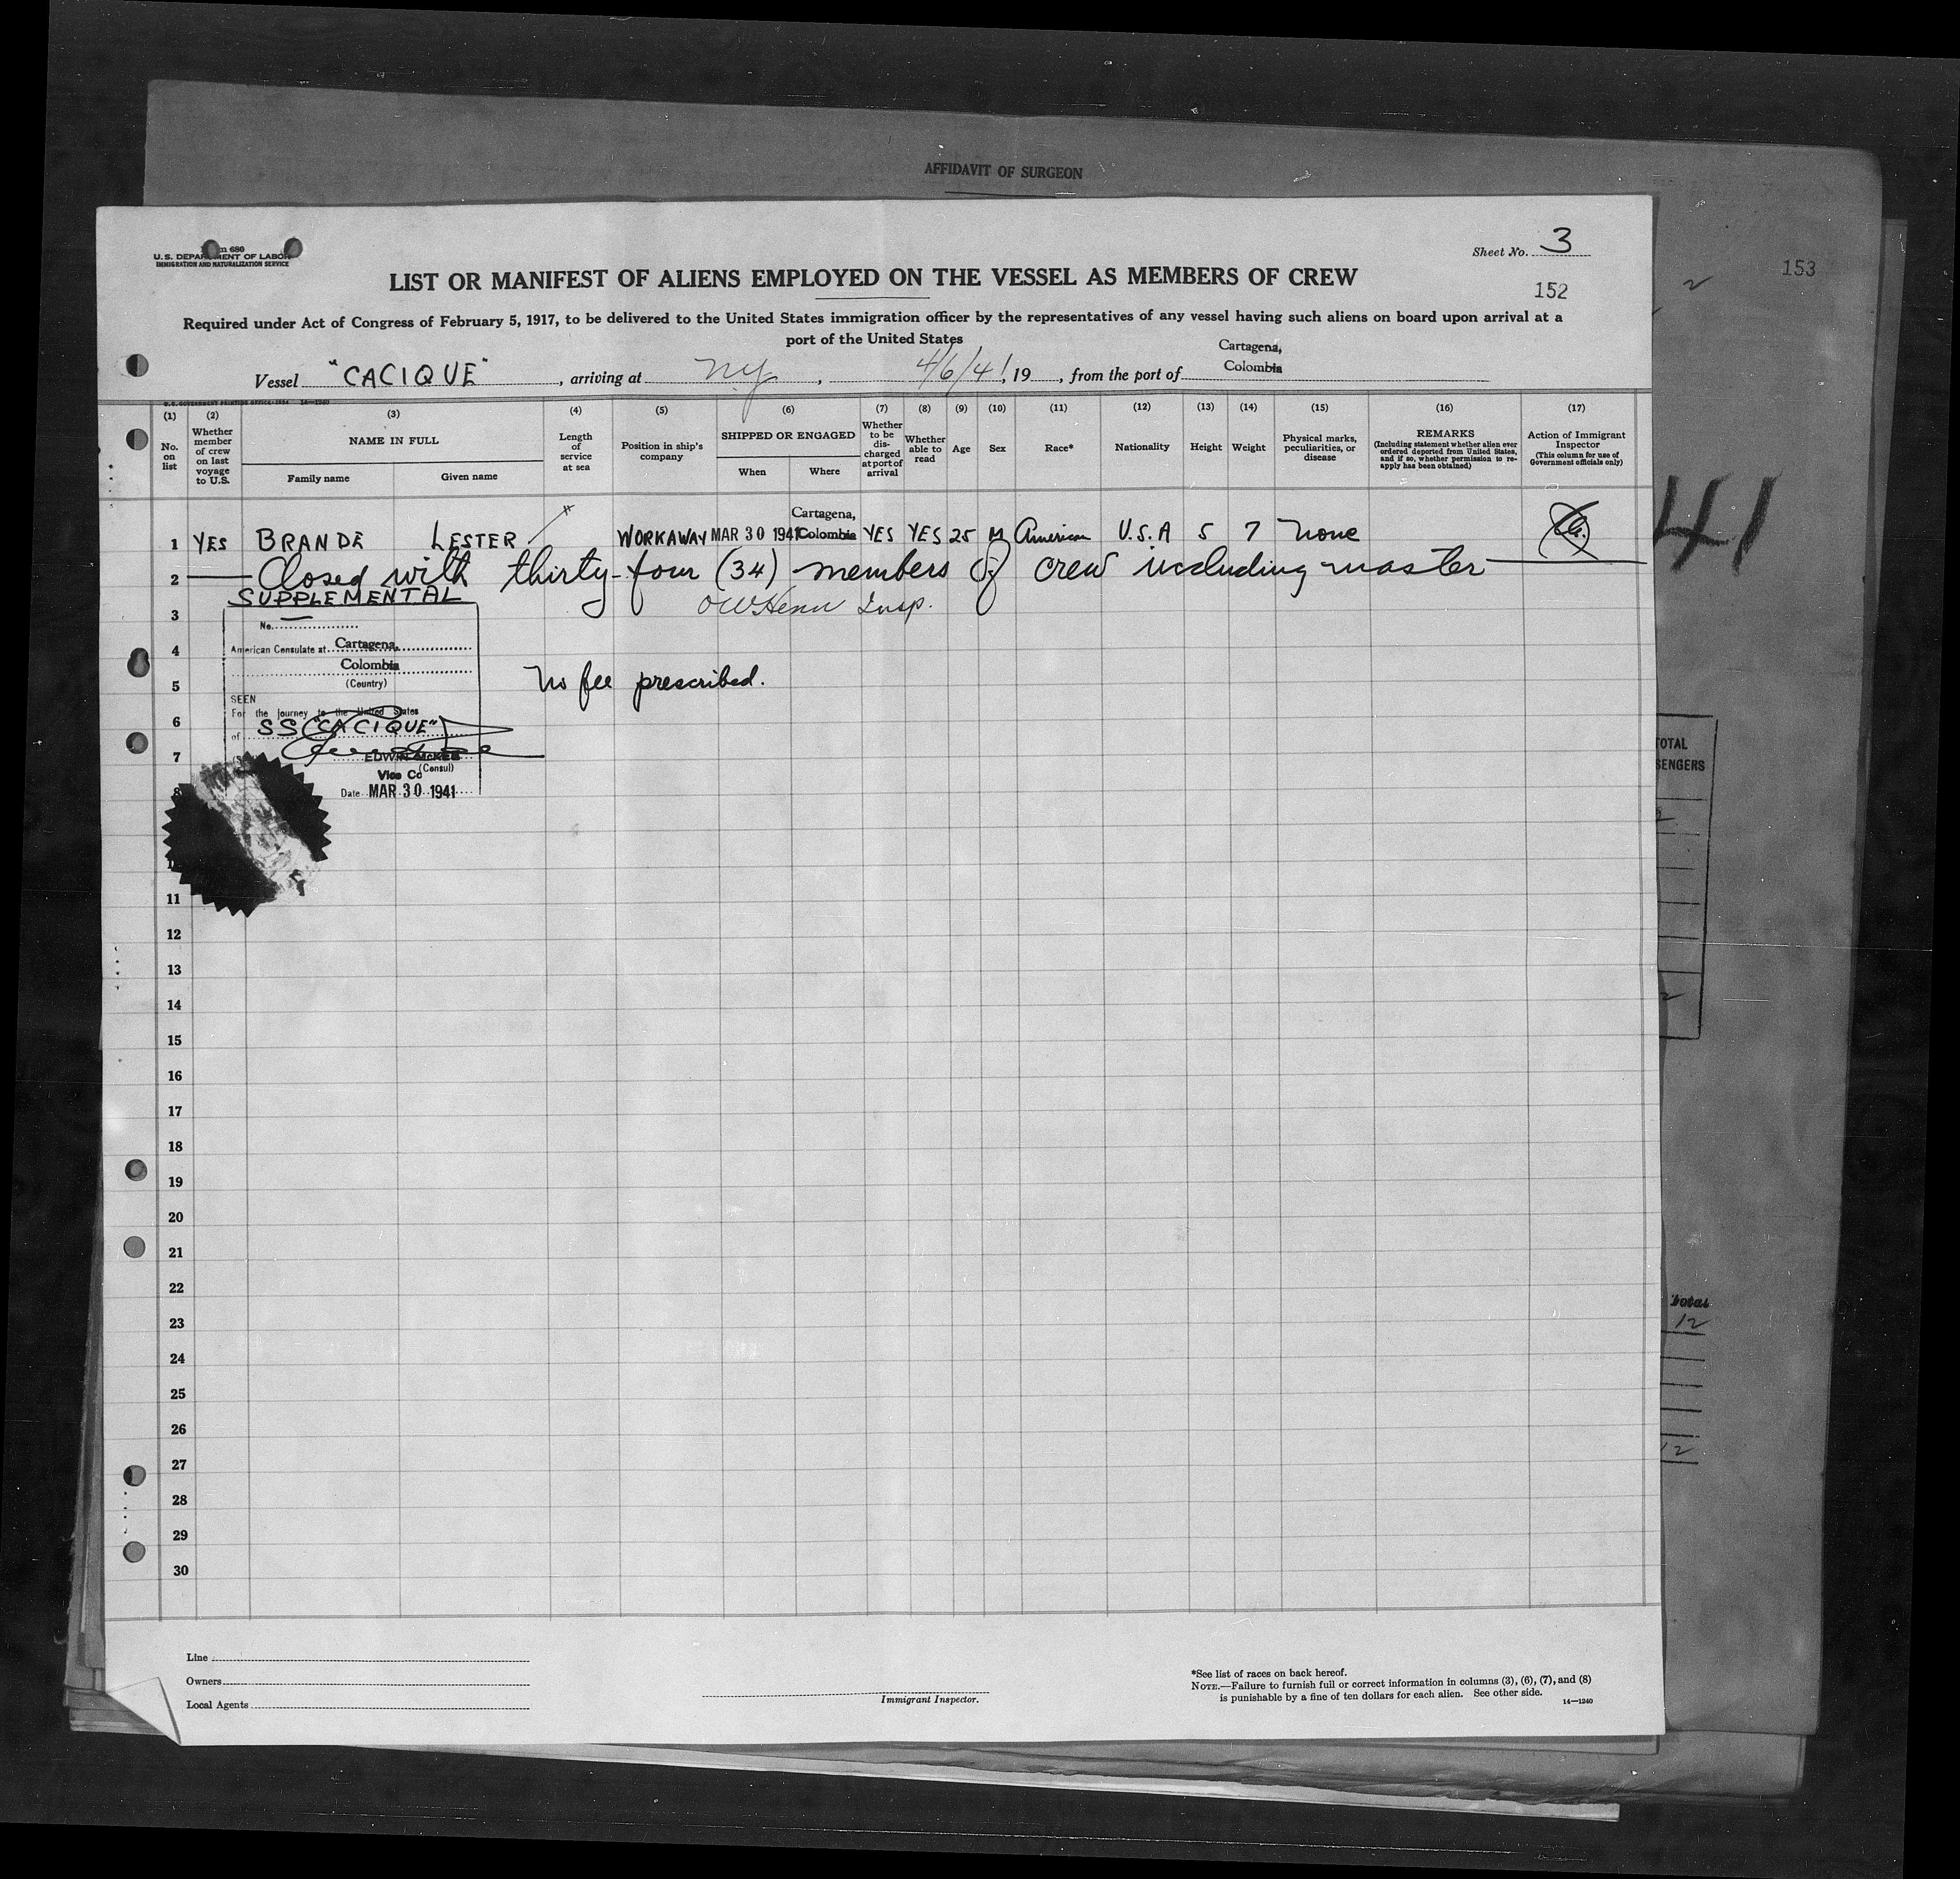 AFFIDAVIT OF SURGEON
153
Form 680
U.S. DEPARTMENT OF LABOR
IMMIGRATION AND NATURALIZATION SERVICE
Sheet No. 3
LIST OR MANIFEST OF ALIENS EMPLOYED ON THE VESSEL AS MEMBERS OF CREW
152
Required under Act of Congress of February 5, 1917, to be delivered to the United States immigration officer by the representatives of any vessel having such aliens on board upon arrival at a
port of the United States
Cartagena,
Vessel "CACIQUE", arriving at NY, 4/6/41, 19, from the port of Colombia
(1) (2) (3) (4) (5) (6) (7) (8) (9) (10) (11) (12) (13) (14) (15) (16) (17)
No. on list
Whether member of crew on last voyage to U.S.
NAME IN FULL
Family name
Given name
Length of service at sea
Position in ship's company
SHIPPED OR ENGAGED
When
Where
Whether to be discharged at port of arrival
Whether able to read
Age
Sex
Race*
Nationality
Height
Weight
Physical marks, peculiarities, or disease
REMARKS
(Including statement whether alien ever ordered deported from United States, and if so, whether permission to reapply has been obtained)
Action of Immigrant Inspector
(This column for use of Government officials only)
Cartagena,
1 YES BRANDE LESTER WORKAWAY MAR 30 1941 Colombia YES YES 25 M American U.S.A 5 7 None
2 Closed with thirty-four (34) members of crew including master
SUPPLEMENTAL
3 Insp.
No.
4 American Consulate at Cartagena,
Colombia
(Country)
5 No fee prescribed.
SEEN
For the journey to the United States
6 of SS "CACIQUE"
7 EDWIN McKEE
(Consul)
Vice Co
8 Date MAR 30 1941
11
12
13
14
15
16
17
18
19
20
21
22
23
24
25
26
27
28
29
30
41
TOTAL
SENGERS
Total
12
12
Line
Owners
Local Agents
Immigrant Inspector.
*See list of races on back hereof.
NOTE.—Failure to furnish full or correct information in columns (3), (6), (7), and (8)
is punishable by a fine of ten dollars for each alien. See other side.
14—1240